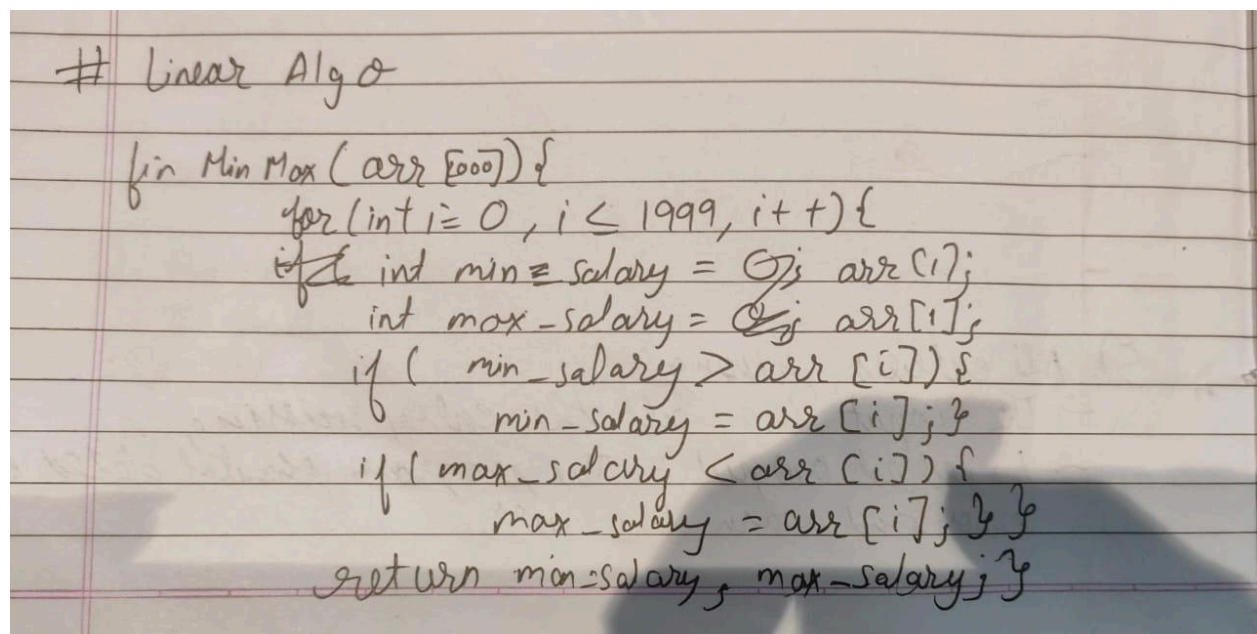 # Linear Algo
fin Min Max ( arr [000]) {
for (int i = 0 , i ≤ 1999, i++) {
int min = salary = arr [i];
int max_salary = arr [i];
if ( min_salary > arr [i]) {
min_salary = arr [i] ; }
if ( max_salary < arr [i]) {
max_salary = arr [i]; } }
return min-salary, max_salary; }